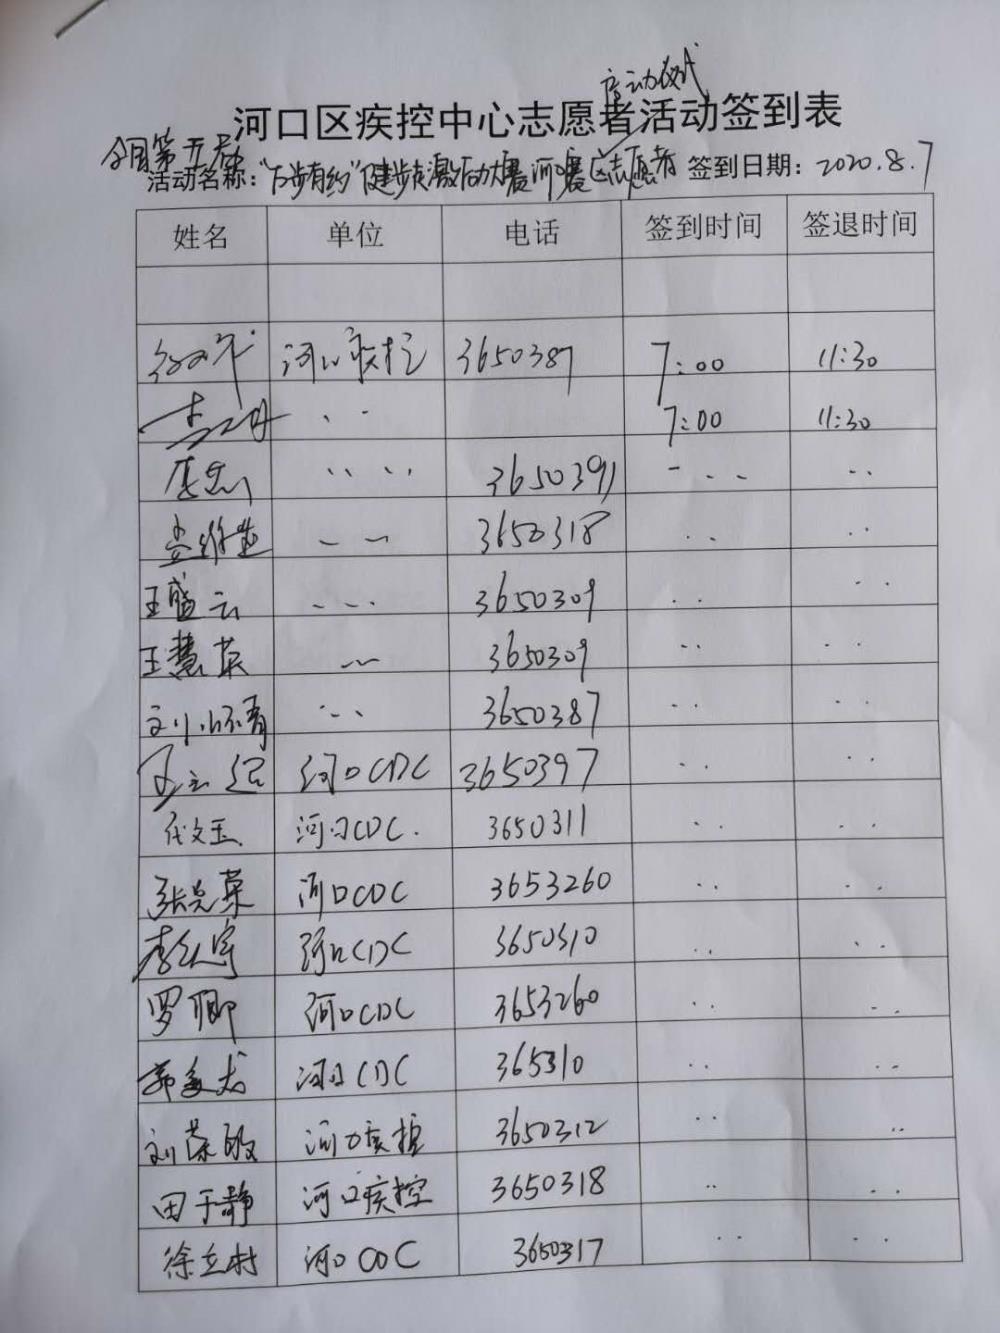 启动仪式
河口区疾控中心志愿者活动签到表
全国第五届
活动名称："万步有约"健步走激励大赛河口赛区志愿者 签到日期：2020.8.7
姓名 单位 电话 签到时间 签退时间
河口疾控 3650387 7:00 11:30
.. 7:00 11:30
.. .. 3650391 - ... ..
-- 3650318 .. ..
王盛云 ... 3650309 .. ..
王慧英 -- 3650309 .. ..
刘小青 ... 3650387 .. ..
河口CDC 3650397 .. ..
代文玉 河口CDC. 3650311 .. ..
张光荣 河口CDC 3653260 .. ..
河口CDC 3650310 .. ..
罗卿 河口CDC 3653260 .. ..
河口CDC 365310 .. ..
刘荣敏 河口疾控 3650312 .. ..
田于静 河口疾控 3650318 .. ..
徐立村 河口CDC 3650317 .. ..